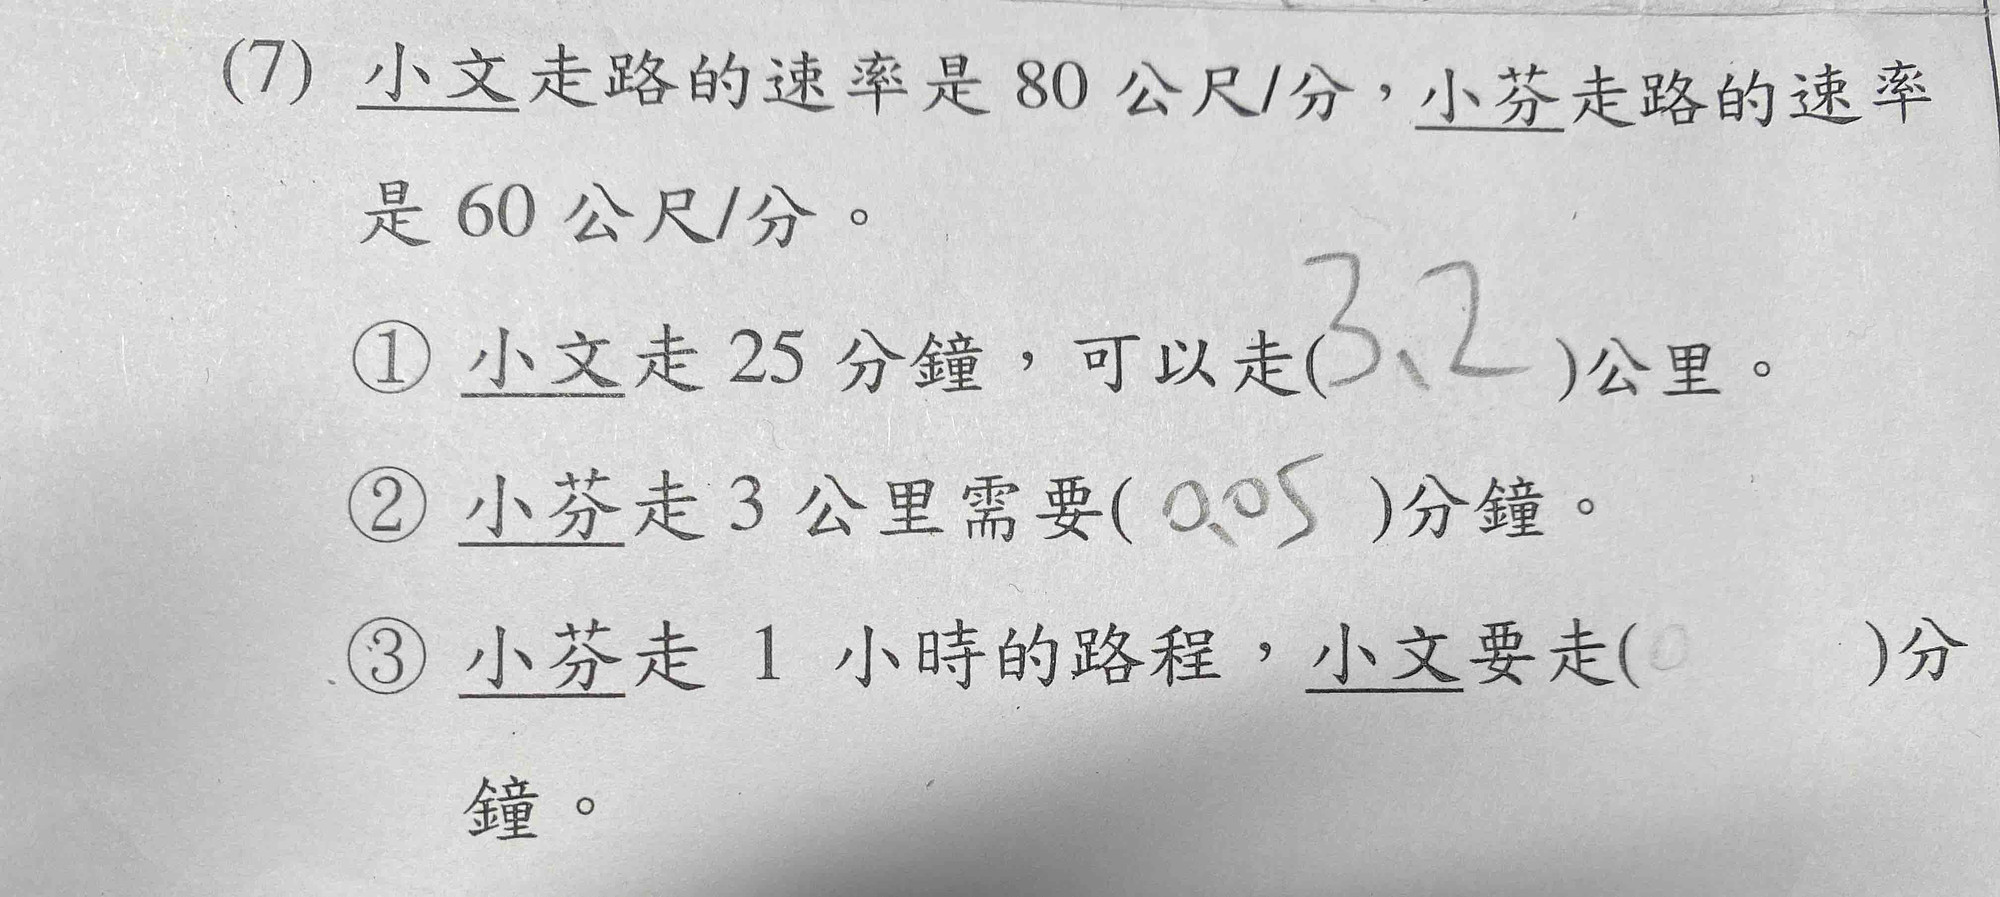 (7) 小文走路的速率是 80 公尺/分，小芬走路的速率
是 60 公尺/分。
① 小文走 25 分鐘，可以走(3.2)公里。
② 小芬走 3 公里需要(0.05)分鐘。
③ 小芬走 1 小時的路程，小文要走( )分
鐘。